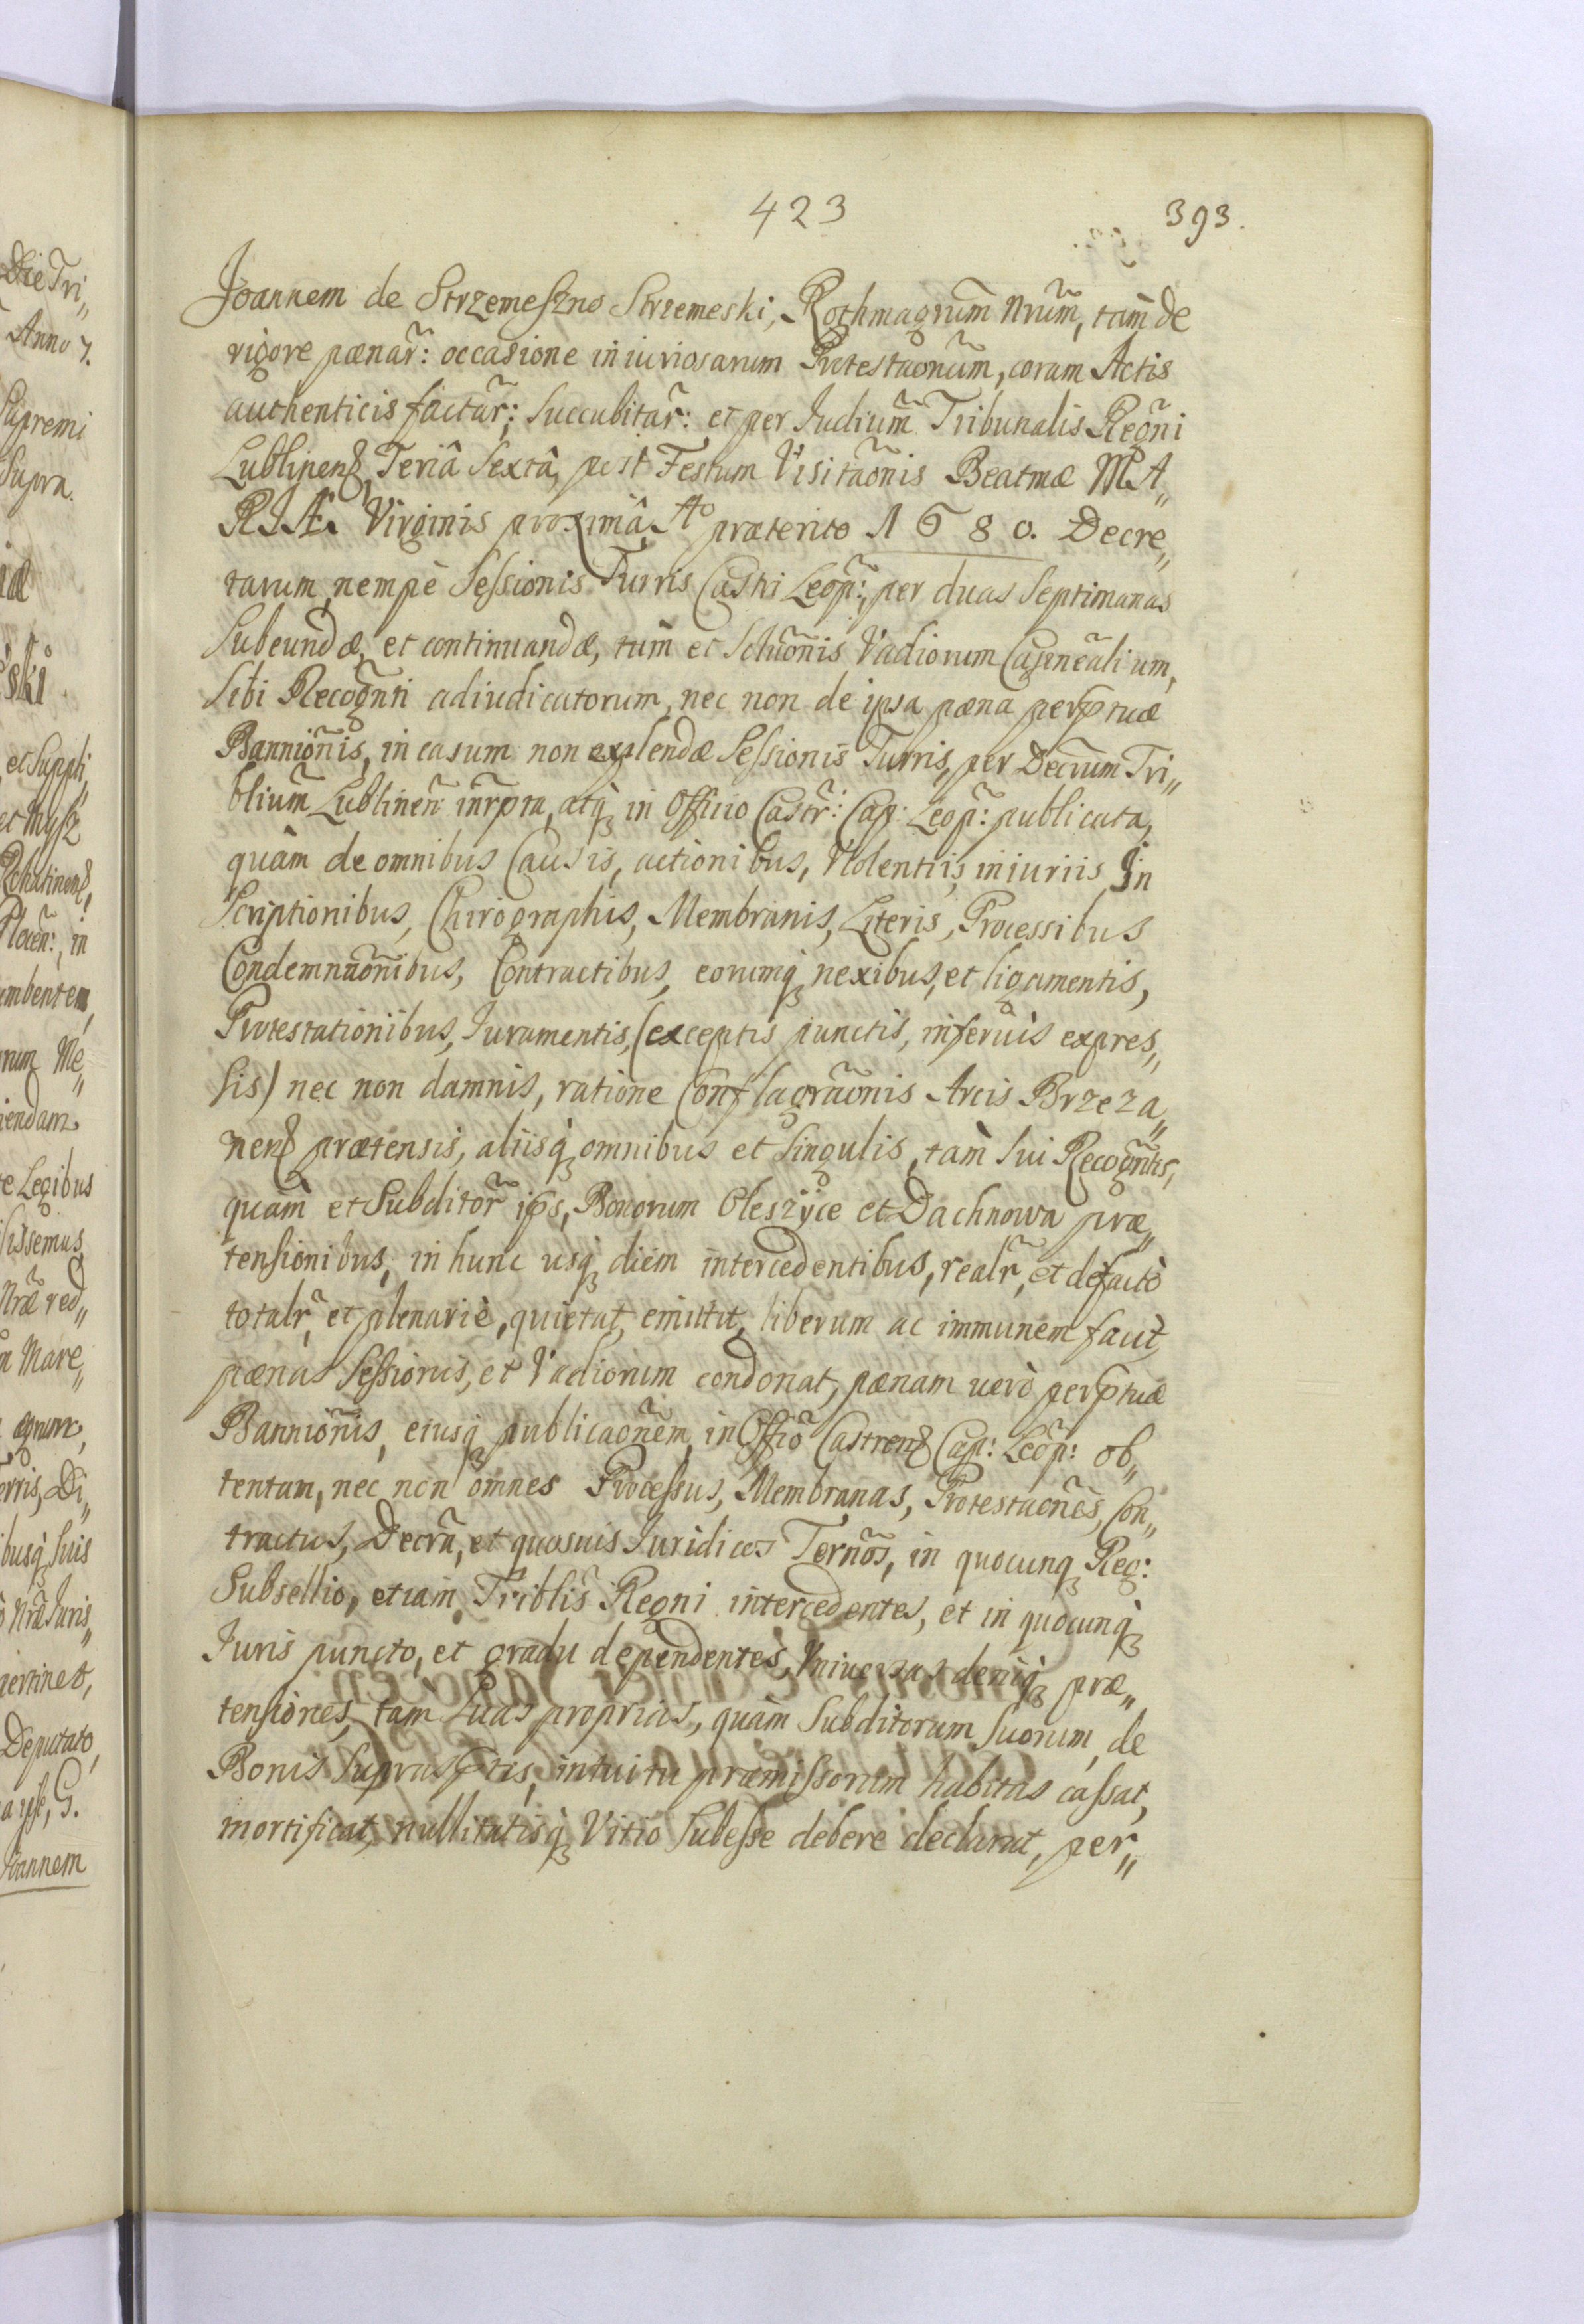 423
393.
Joannem de Strzemeszno Strzemeski, Rothmagrum Nrum, tam de
rigore pænar: occasione iniuriosarum Protestaonum, coram Actis
authenticis factar: Succubitar: et per Iudium Tribunalis Regni
Lublinens, Feriâ Sextâ, post Festum Visitaonis Beatmæ MA„
RIÆ Virginis proximâ, Ao præterito 1680. Decre„
tarum, nempè Sessionis Turris Castri Leop:, per duas Septimanas
Subeundæ, et continuandæ, tum et Soluonis Vadiorum
Sibi Recognti adiudicatorum, nec non de ipsa pæna perptuæ
Bannionis, in casum non explendæ Sessionis Turris, per Decrum Tri„
blium Lublinen inrpta, atq in Officio Castr: Cap: Leop: publicata,
quàm de omnibus Causis, actionibus, Violentiis, iniuriis, In
Scriptionibus, Chirographis, Membranis, Literis, Processibus
Condemnaonibus, Contractibus, eorumq nexibus, et ligamentis,
Protestationibus, Iuramentis, (exceptis punctis, inferius expres„
sis) nec non damnis, ratione Conflagraonis Arcis Brzeza„
nens prætensis, aliisq omnibus et Singulis, tam Sui Recogntis,
quam et Subditor ips, Bonorum Oleszyce et Dachnowa præ„
tensionibus, in hunc usq diem intercedentibus, realr, et de facto
totalr, et plenariè, quietat, emittit, liberum ac immunem facit,
pænas Sessionis, et Vadiorum condonat, pænam uerò perptuæ
Bannionis, eiusq publicaonem, in Offio Castrens Cap: Leop: ob„
tentam, nec non omnes Processus, Membranas, Protestaones, Con„
tractus, Decra, et quosuis Iuridicos Ternos, in quocunq Reg:
Subsellio, etiam Triblis Regni intercedentes, et in quocunq
Iuris puncto, et gradu dependentes, Vniuersas deniq præ„
tensiones, tam Suas proprias, quàm Subditorum Suorum, de
Bonis Suprasptis, intuitu præmissorum habitas cassat,
mortificat, nullitatisq Vitio Subesse debere declarat, per„
Die Tri„
Anno
Supremi
Supra.
et Suppli„
in
Me„
Legibus
red„
Mare„
Di„
busq Suis
Nræ Iuris„
pertinet,
Deputato,
Joannem